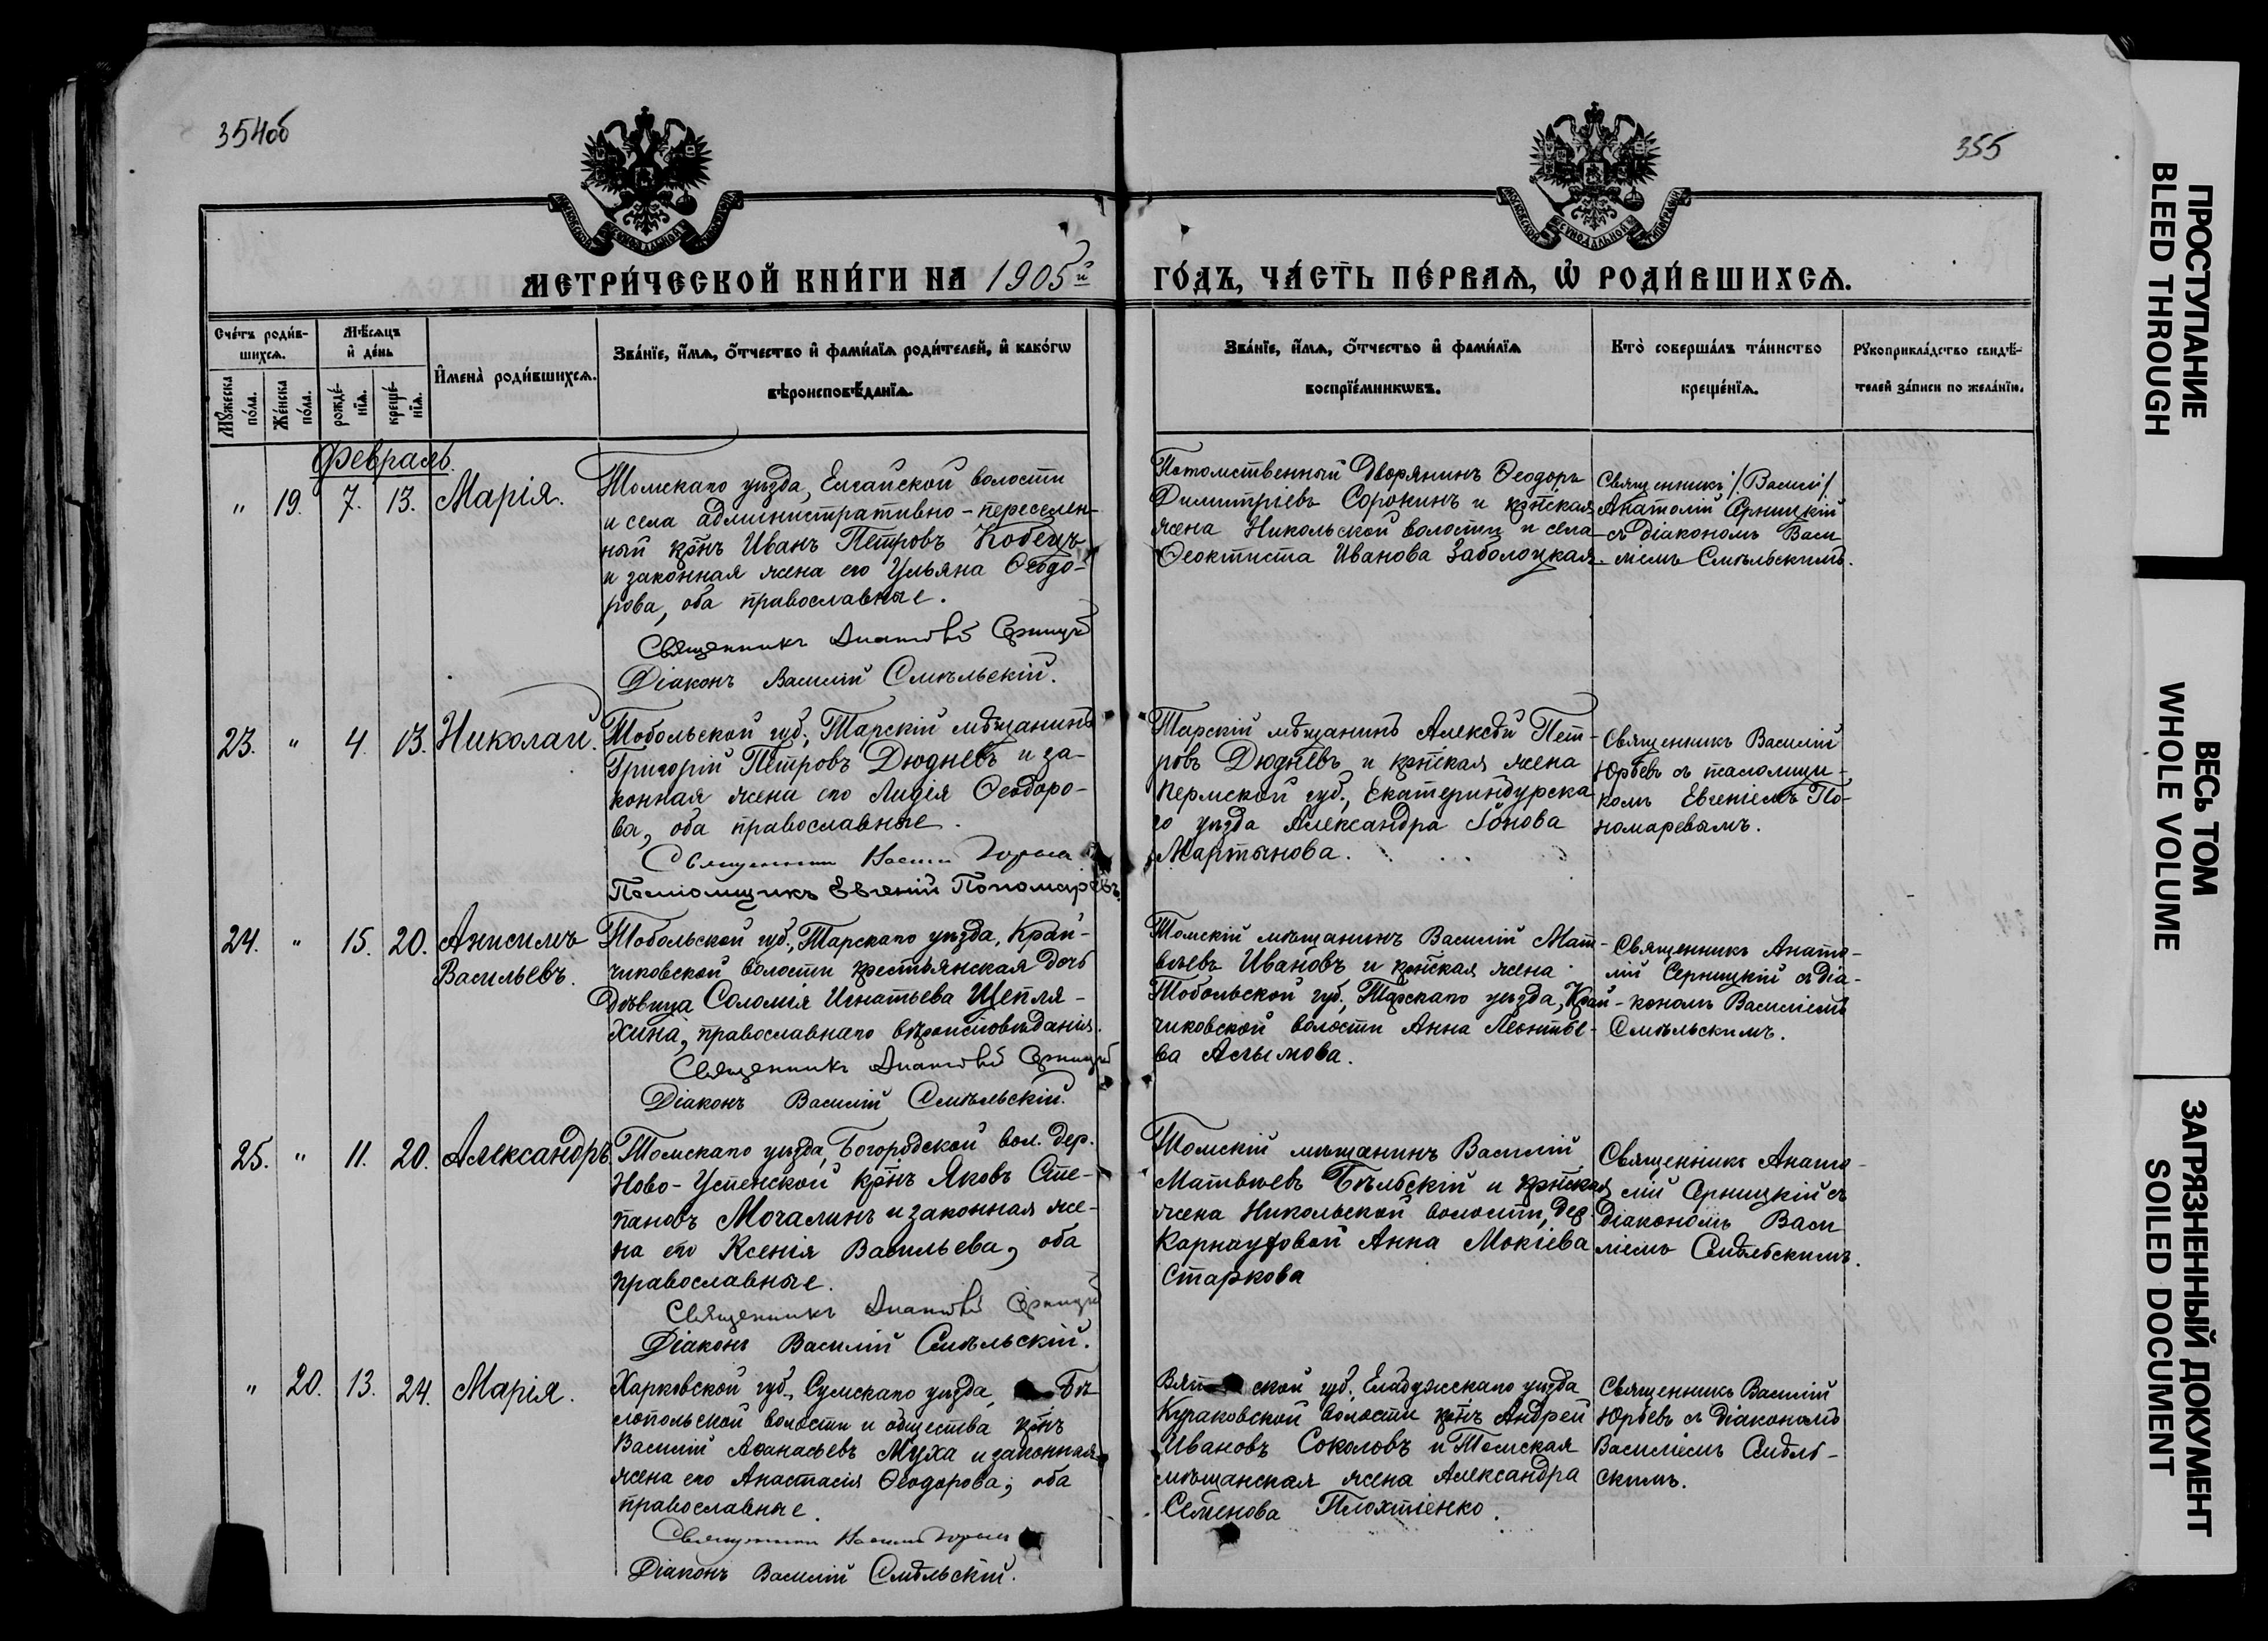 354об
355
МОСКОВСКОЙ СѴНОДАЛЬНОЙ ТИПОГРАФІИ
МОСКОВСКОЙ СѴНОДАЛЬНОЙ ТИПОГРАФІИ
МЕТРИ́ЧЕСКОЙ КНИ́ГИ НА 1905й
ГО́ДЪ, ЧА́СТЬ ПЕ́РВАѦ, Ѡ҆ РОДИ́ВШИХСѦ.
Сче́тъ роди́в-
шихсѧ.
Мꙋ́жеска
по́ла.
Же́нска
по́ла.
Мѣ́сѧцъ
и҆ де́нь
рожде́-
нїѧ.
креще́-
нїѧ.
И҆мена̀ роди́вшихсѧ.
Зва́нїе, и҆́мѧ, ѻ҆́тчество и҆ фами́лїѧ роди́телей, и҆ како́гѡ
вѣроисповѣ́данїѧ.
Зва́нїе, и҆́мѧ, ѻ҆́тчество и҆ фами́лїѧ
воспрїе́мникѡвъ.
Кто̀ соверша́лъ та́инство
креще́нїѧ.
Рꙋкоприкла́дство свидѣ́-
телей за́писи по жела́нїю.
Февраль.
" 19. 7. 13. Марія.
Томскаго уѣзда, Елгайской волости
и села административно-переселен-
ный крнъ Иванъ Петровъ Кобецъ
и законная жена его Ульяна Ѳеодо-
рова, оба православные.
Священникъ Анатолій Серницкій
Діаконъ Василій Смѣльскій.
Потомственный Дворянинъ Ѳеодоръ
Димитріевъ Сорокинъ и крнская
жена Никольской волости и села
Ѳеоктиста Иванова Заболоцкая.
Священникъ /Василій/
Анатолій Серницкій
съ діакономъ Васи
ліемъ Смѣльскимъ.
23. " 4. 13. Николай.
Тобольской губ., Тарскій мѣщанинъ
Григорій Петровъ Дюдневъ и за-
конная жена его Лидія Ѳеодоро-
ва, оба православные.
Священникъ Василій Юрьевъ
Псаломщикъ Евгеній Пономаревъ.
Тарскій мѣщанинъ Алексѣй Пет-
ровъ Дюдневъ и крнская жена
Пермской губ., Екатеринбурска-
го уѣзда Александра Іонова
Мартынова.
Священникъ Василій
Юрьевъ съ псаломщи-
комъ Евгеніемъ По-
номаревымъ.
24. " 15. 20. Анисимъ
Васильевъ.
Тобольской губ., Тарскаго уѣзда, Край-
чиковской волости крестьянская дочь
Дѣвица Соломія Игнатьева Щепля-
хина, православнаго вѣроисповѣданія.
Священникъ Анатолій Серницкій
Діаконъ Василій Смѣльскій.
Томскій мѣщанинъ Василій Мат-
вѣевъ Ивановъ и крнская жена
Тобольской губ., Тарскаго уѣзда, Край-
чиковской волости Анна Леонтье-
ва Асымова.
Священникъ Анато-
лій Серницкій съ діа-
кономъ Василіемъ
Смѣльскимъ.
25. " 11. 20. Александръ
Томскаго уѣзда, Богородской вол. дер.
Ново-Успенской крнъ Яковъ Сте-
пановъ Мочалинъ и законная же-
на его Ксенія Васильева, оба
православные.
Священникъ Анатолій Серницкій
Діаконъ Василій Смѣльскій.
Томскій мѣщанинъ Василій
Матвѣевъ Бѣльскій и крнская
жена Никольской волости, дер.
Карнауховой Анна Мокіева
Старкова
Священникъ Анато-
лій Серницкій съ
Діакономъ Васи
ліемъ Смѣльскимъ.
" 20. 13. 24. Марія.
Харьковской губ., Сумскаго уѣзда, Бѣ
лопольской волости и общества крнъ
Василій Аѳанасьевъ Муха и законная
жена его Анастасія Ѳеодорова, оба
православные.
Священникъ Василій Юрьевъ
Діаконъ Василій Смѣльскій.
Вятской губ., Елабужскаго уѣзда
Кураковской волости крнъ Андрей
Ивановъ Соколовъ и Томская
мѣщанская жена Александра
Семенова Плохтіенко.
Священникъ Василій
Юрьевъ съ діакономъ
Василіемъ Смѣль-
скимъ.
ПРОСТУПАНИЕ
BLEED THROUGH
ВЕСЬ ТОМ
WHOLE VOLUME
ЗАГРЯЗНЕННЫЙ ДОКУМЕНТ
SOILED DOCUMENT